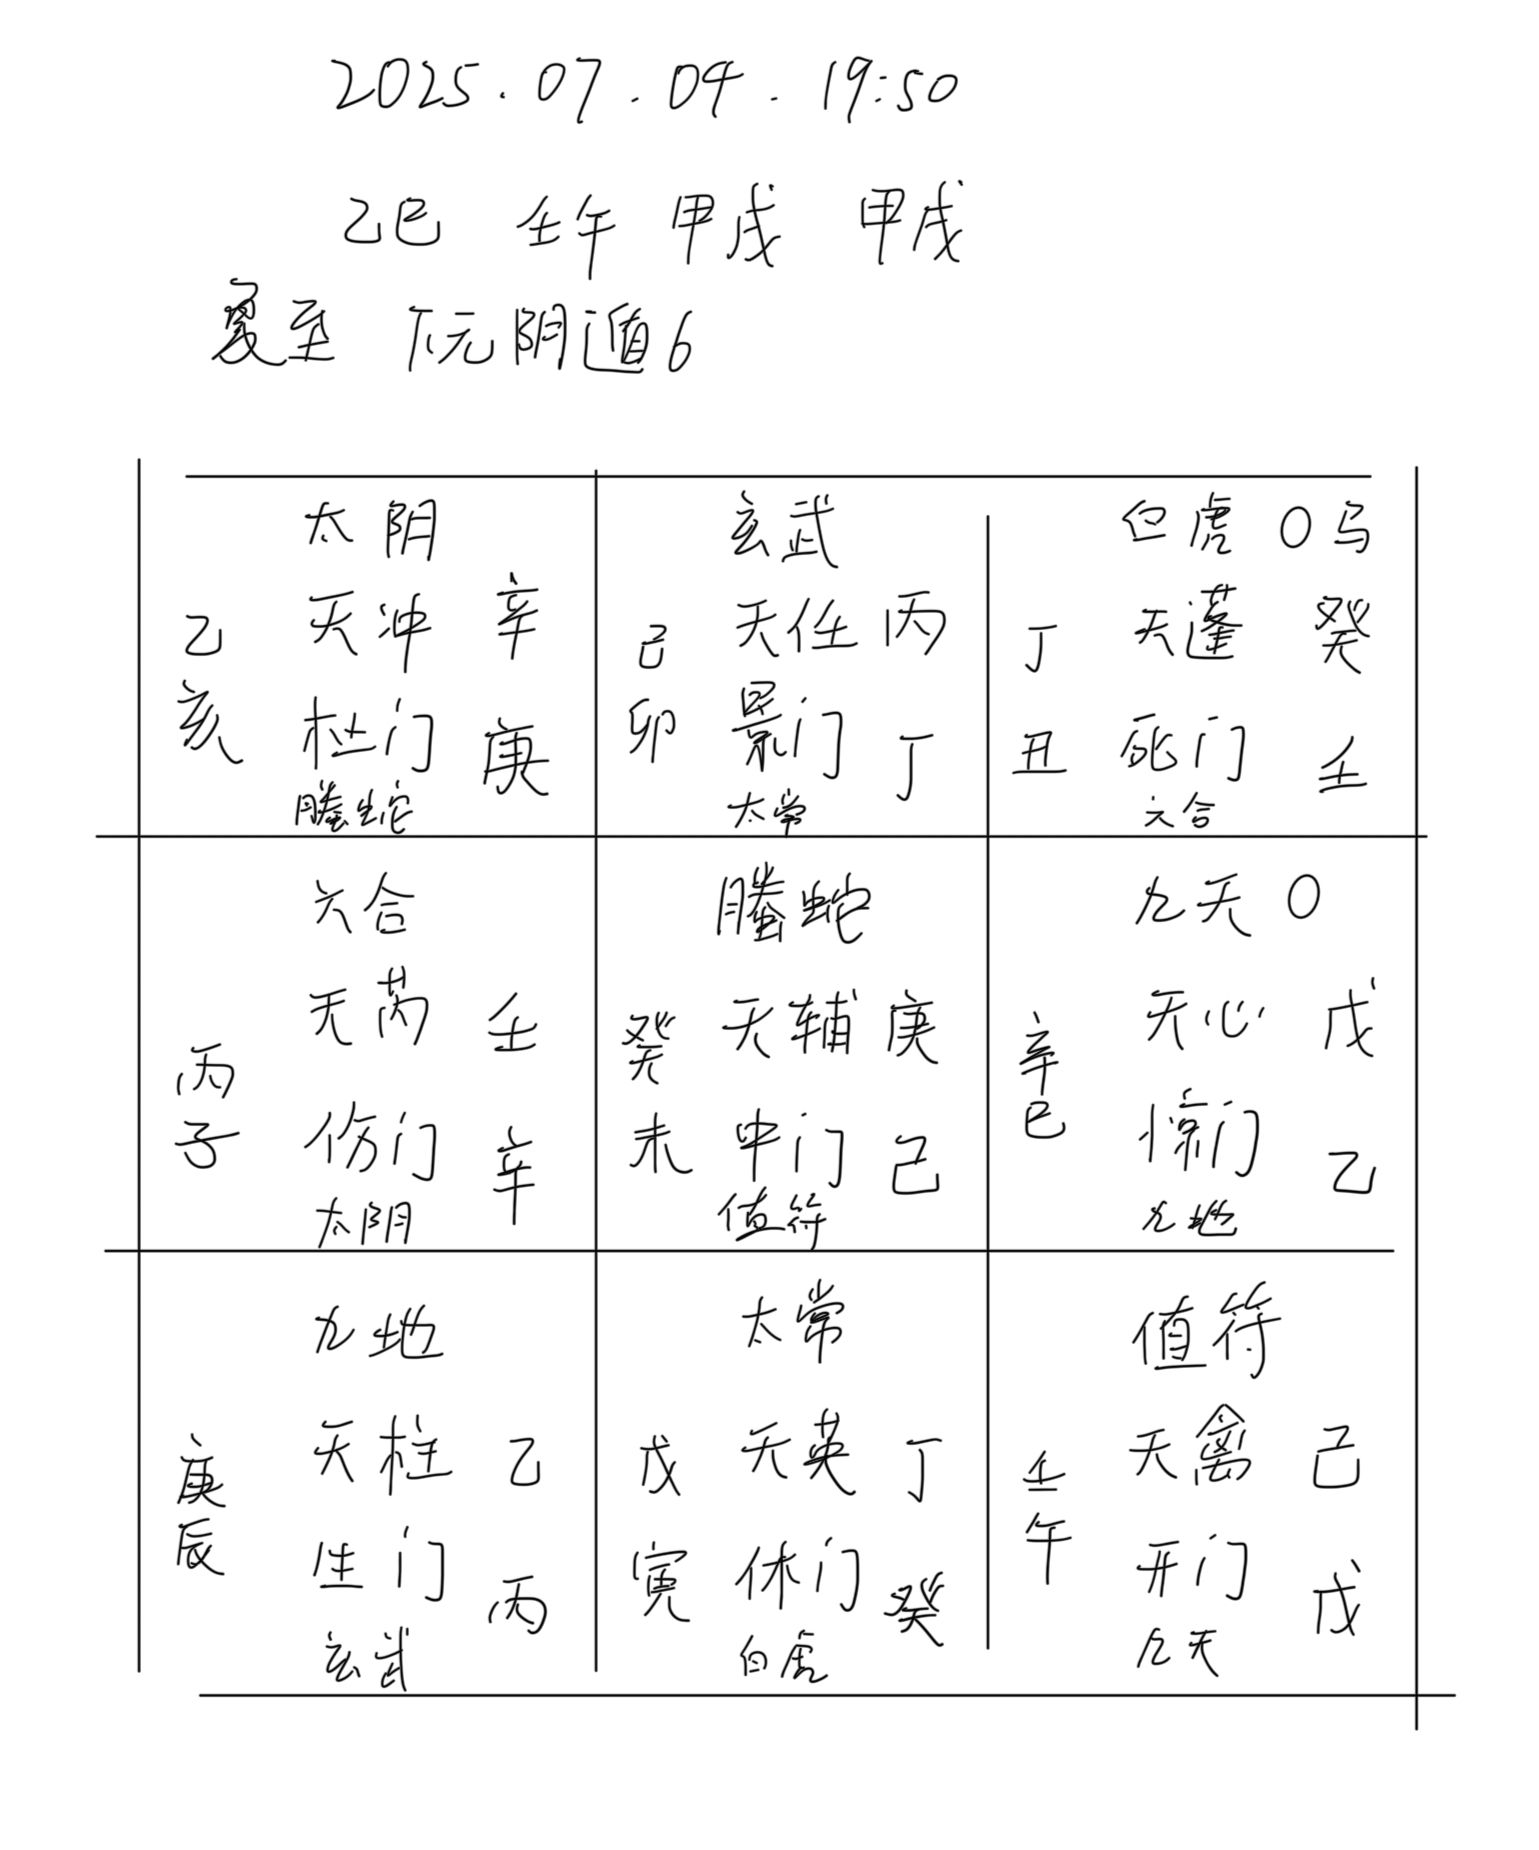 2025.07.04.19:50
乙巳 壬午 甲戌 甲戌
夏至 下元阴遁6
太阴
天冲 辛
乙亥
杜门 庚
螣蛇
玄武
天任 丙
己卯
景门 丁
太常
白虎 〇马
天蓬 癸
丁丑
死门 壬
六合
六合
天芮 壬
丙子
伤门 辛
太阴
螣蛇
天辅 庚
癸未
中门 己
值符
九天 〇
天心 戊
辛巳
惊门 乙
九地
九地
天柱 乙
庚辰
生门 丙
玄武
太常
天英 丁
戊寅
休门 癸
白虎
值符
天禽 己
壬午
开门 戊
九天